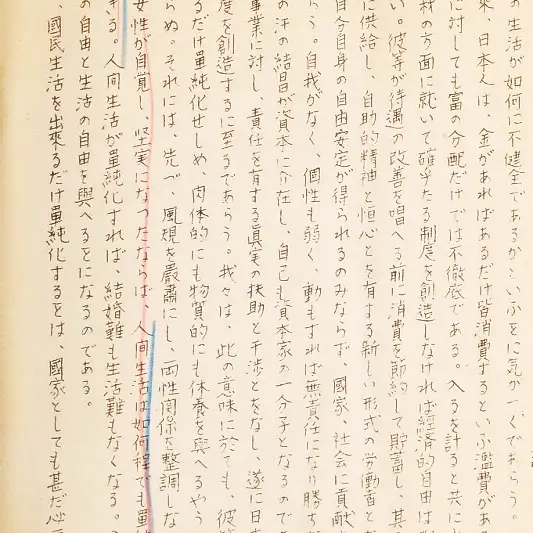 の生活が如何に不健全であるかといふことに気がつくであらう。
来、日本人は、金があればあるだけ皆消費するといふ濫費があ
に対しても富の分配だけでは不徹底である。入るを計ると共に
我の方面に就いて確乎たる制度を創造しなければ経済的自由は
い。彼等が待遇の改善を唱へる前に消費を節約して貯蓄し、其
に供給し、自助的精神と恒心とを有する新しい形式の労働者と
自分自身の自由安定が得られるのみならず、国家、社会に貢献
らう。自我がなく、個性も弱く、動もすれば無責任になり勝ち
の汗の結晶が資本に介在し、自己も資本家の一分子となるので
事業に対し、責任を有する眞実の扶助と干渉とをなし、遂に日
度を創造するに至るであらう。我々は、此の意味に於ても、彼
るだけ單純化せしめ、肉体的にも物質的にも休養を與へるやう
らぬ。それには、先づ、風規を嚴肅にし、両性関係を整調しな
女性が自覚し、堅実になつたならば、人间生活は如何程でも單
きる。人间生活が單純化すれば、結婚難も生活難もなくなる。
の自由と生活の自由を與へることになるのである。
、國民生活を出來るだけ單純化することは、國家としても甚だ必